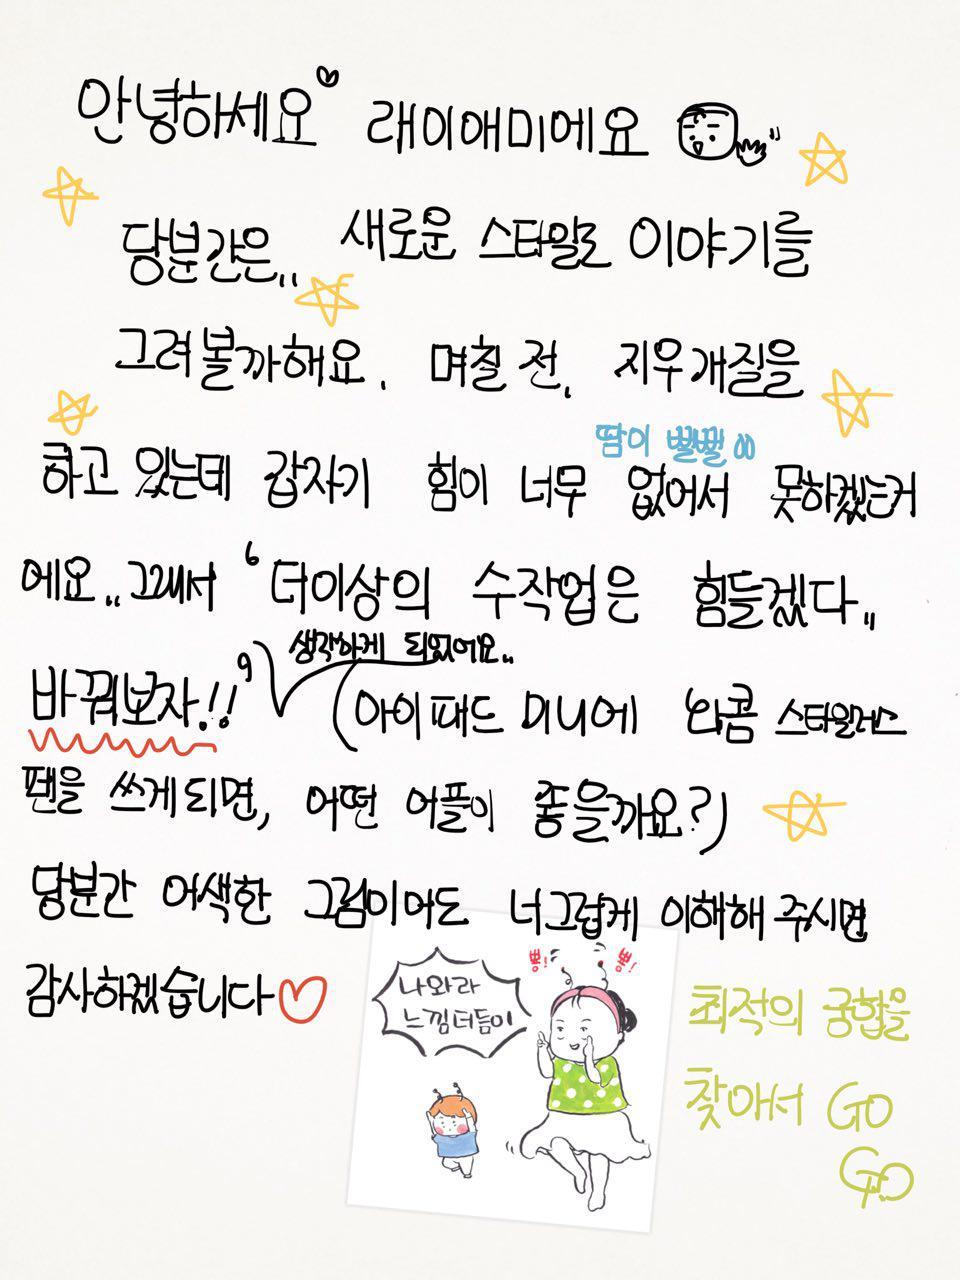 안녕하세요 래이애미에요
당분간은.. 새로운 스타일로 이야기를
그려볼까해요. 며칠 전, 지우개질을
땀이 삘삘
하고 있는데 갑자기 힘이 너무 없어서 못하겠는거
에요.. 그래서 '더이상의 수작업은 힘들겠다..
생각하게 되었어요..
바꿔보자!!' (아이패드 미니에 와콤 스타일러스
팬을 쓰게되면, 어떤 어플이 좋을까요?)
당분간 어색한 그림이어도 너그럽게 이해해 주시면
감사하겠습니다
뿅! 뿅!
나와라
느낌더듬이
최적의 궁합을
찾아서 GO
GO